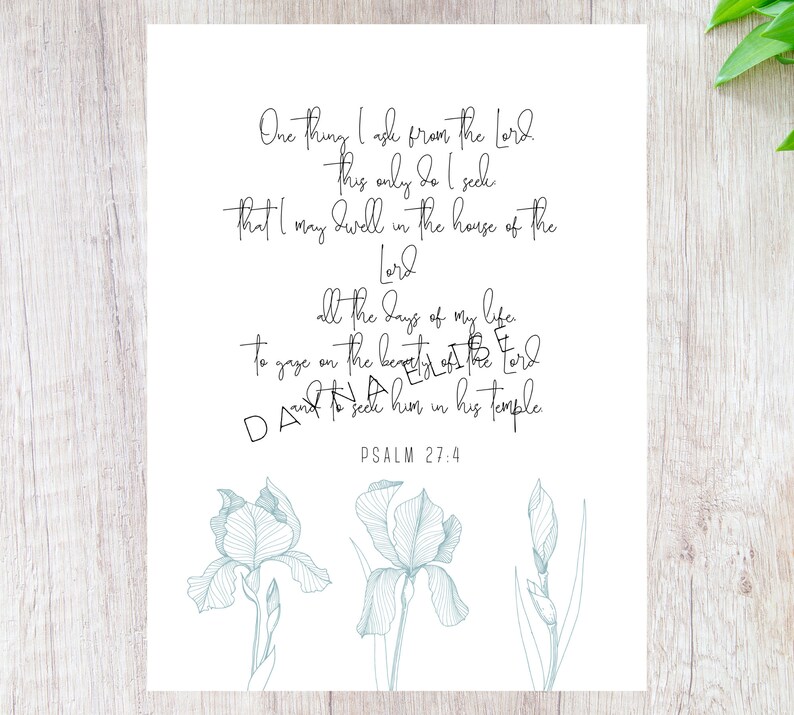 One thing I ask from the Lord,
this only do I seek:
that I may dwell in the house of the
Lord
all the days of my life,
to gaze on the beauty of the Lord
and to seek him in his temple.
DAYNA ELISE
PSALM 27:4